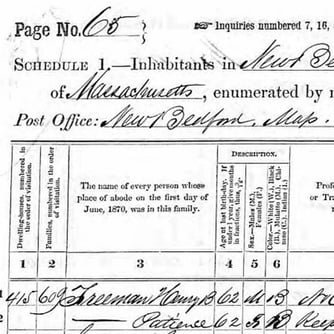 Page No. 65
☞ Inquiries numbered 7, 16,
SCHEDULE 1.—Inhabitants in New Be
of Massachusetts, enumerated by
Post Office: New Bedford, Mass.
Dwelling-houses, numbered in the order of visitation.
Families, numbered in the order of visitation.
The name of every person whose
place of abode on the first day of
June, 1870, was in this family.
DESCRIPTION.
Age at last birth-day. If under 1 year, give months in fractions, thus, 3/12
Sex.—Males (M.), Females (F.)
Color.—White (W.), Black (B.), Mulatto (M.), Chinese (C.), Indian (I.)
Prof
or Tra
1 2 3 4 5 6
1 415 609 Freeman Henry B 62 M B
— Patience 62 F B